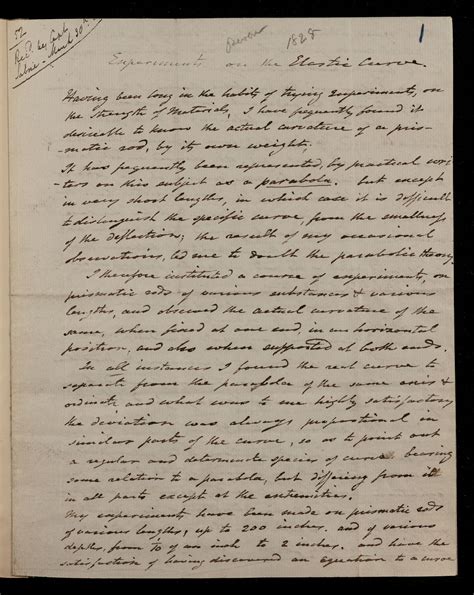 52
Recd. by Capt.
Sabine - March 30th
1828
1
Experiments on the Elastic Curve.
Having been long in the habits of trying Experiments, on
the Strength of Materials, I have frequently found it
desireable to know the actual curvature of a pris-
-matic rod, by its own weight.
It has frequently been represented, by practical wri-
-ters on this subject as a parabola. but except
in very short lengths, in which case it is difficult
to distinguish the specific curve, from the smallness
of the deflection; the result of my occasional
observations, led me to doubt the parabolic theory.
I therefore instituted a course of experiments, on
prismatic rods of various substances & various
lengths, and observed the actual curvature of the
same, when fixed at one end, in an horizontal
position, and also when supported at both ends.
In all instances I found the real curve to
separate from the parabola of the same axis &
ordinate and what was to me highly satisfactory
the diviation was always propotional in
similar parts of the curve, so as to point out
a regular and determinate species of curve bearing
some relation to a parabola, but differing from it
in all parts except at the extremities.
My experiments have been made on prismatic rods
of various lengths, up to 200 inches. and of various
depths, from 1/10 of an inch to 2 inches. and have the
satisfaction of having discovered an Equation to a curve